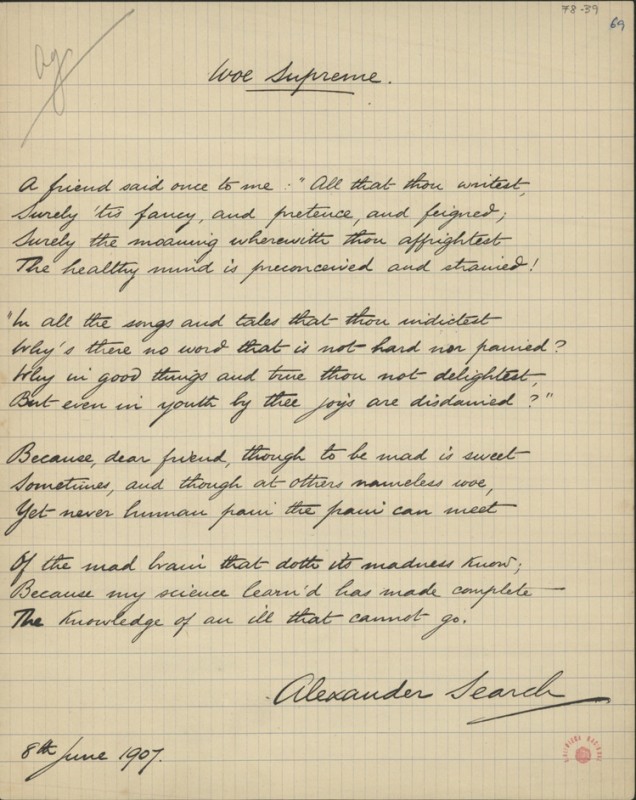 78-39
69
Woe Supreme.
A friend said once to me : "All that thou writest,
Surely 'tis fancy, and pretence, and feigned;
Surely the moaning wherewith thou affrightest
The healthy mind is preconceived and strained!
"In all the songs and tales that thou indictest
Why's there no word that is not hard nor pained?
Why in good things and true thou not delightest,
But even in youth by thee joys are disdained?"
Because, dear friend, though to be mad is sweet
Sometimes, and though at others nameless woe,
Yet never human pain the pain can meet
Of the mad brain that doth its madness know;
Because my science learn'd has made complete
The knowledge of an ill that cannot go.
Alexander Search
8th June 1907.